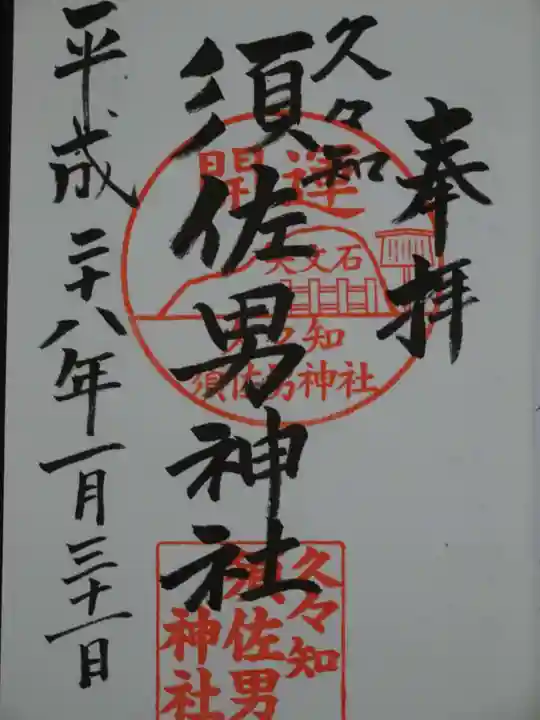 奉拝
久々知
須佐男神社
平成二十八年一月三十一日
開運
文石
知
須佐男神社
久々知
須佐男
神社